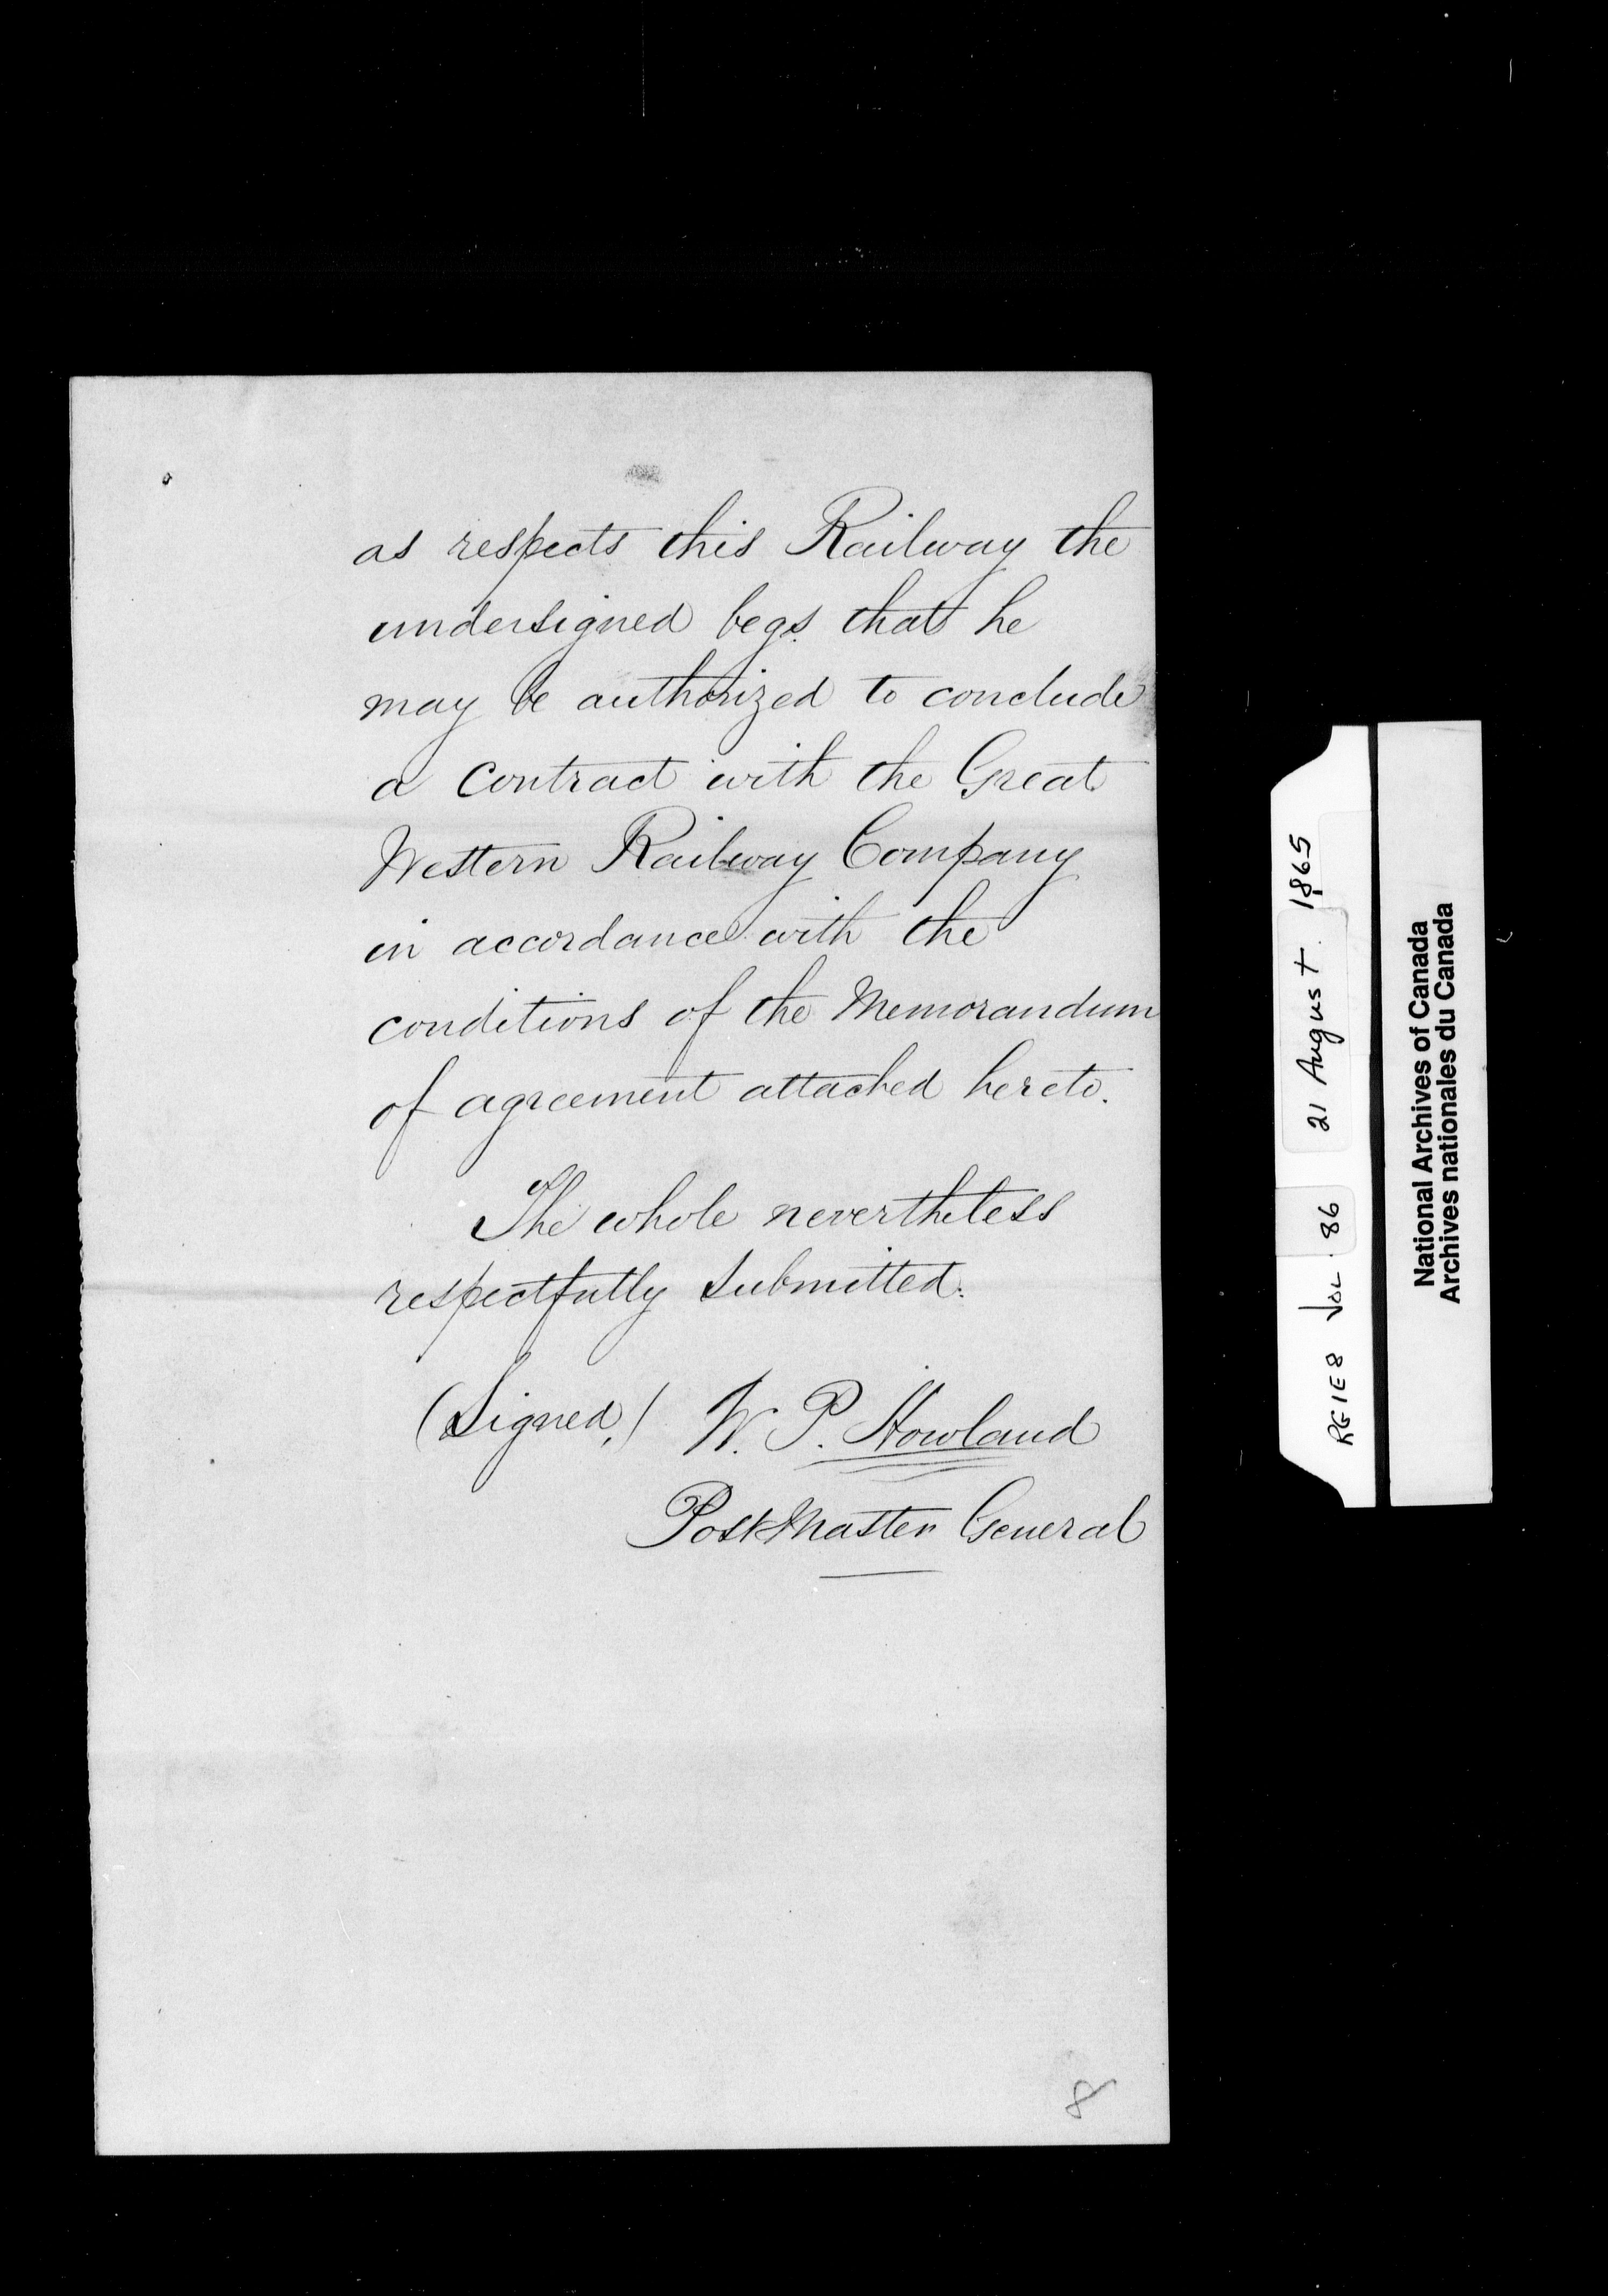 as respects this Railway the
undersigned begs that he
may be authorized to conclude
a Contract with the Great
Western Railway Company
in accordance with the
conditions of the Memorandum
of agreement attached hereto.
The whole nevertheless
respectfully submitted.
(Signed,) W. P. Howland
PostMaster General
8
RG1E8 VOL. 86 21 August. 1865
National Archives of Canada
Archives nationales du Canada